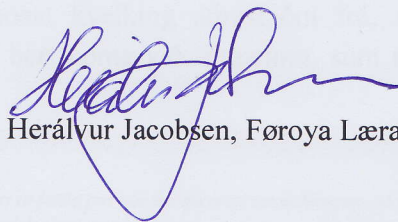 Herálvur Jacobsen, Føroya Læra